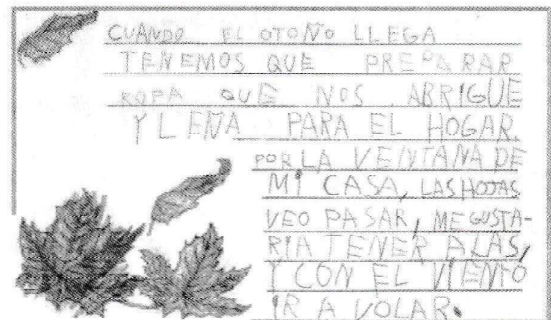 CUANDO EL OTOÑO LLEGA
TENEMOS QUE PREPARAR
ROPA QUE NOS ABRIGUE
Y LEÑA PARA EL HOGAR.
POR LA VENTANA DE
MI CASA, LAS HOJAS
VEO PASAR, ME GUSTA-
RIA TENER ALAS,
Y CON EL VIENTO
IR A VOLAR.